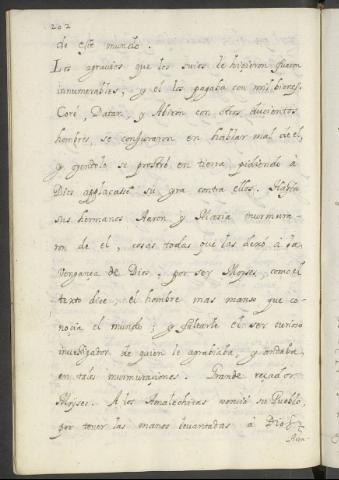 202
de este mundo.
Los agravios que los suios le hicieron fueron
innumerables; y el los pagaba con mil bienes.
Coré, Datan, y Abiron con otros ducientos
hombres, se conjuraron en hablar mal de el,
y oyendolo se prostró en tierra, pidiendo à
Dios applacasse su yra contra ellos. Hasta
sus hermanos Aaron y Maria murmura-
ron de el, cosas todas que las dexó à la
Venganza de Dios, por ser Moyses, como el
texto dice, el hombre mas manso que co-
nocia el mundo; y faltarle el ser curioso
investigador de quien le agrabiaba, y andaba
en tales murmuraciones. Grande reçador
Moyses. A los Amalechitas venció su Pueblo,
por tener las manos levantadas à Dios